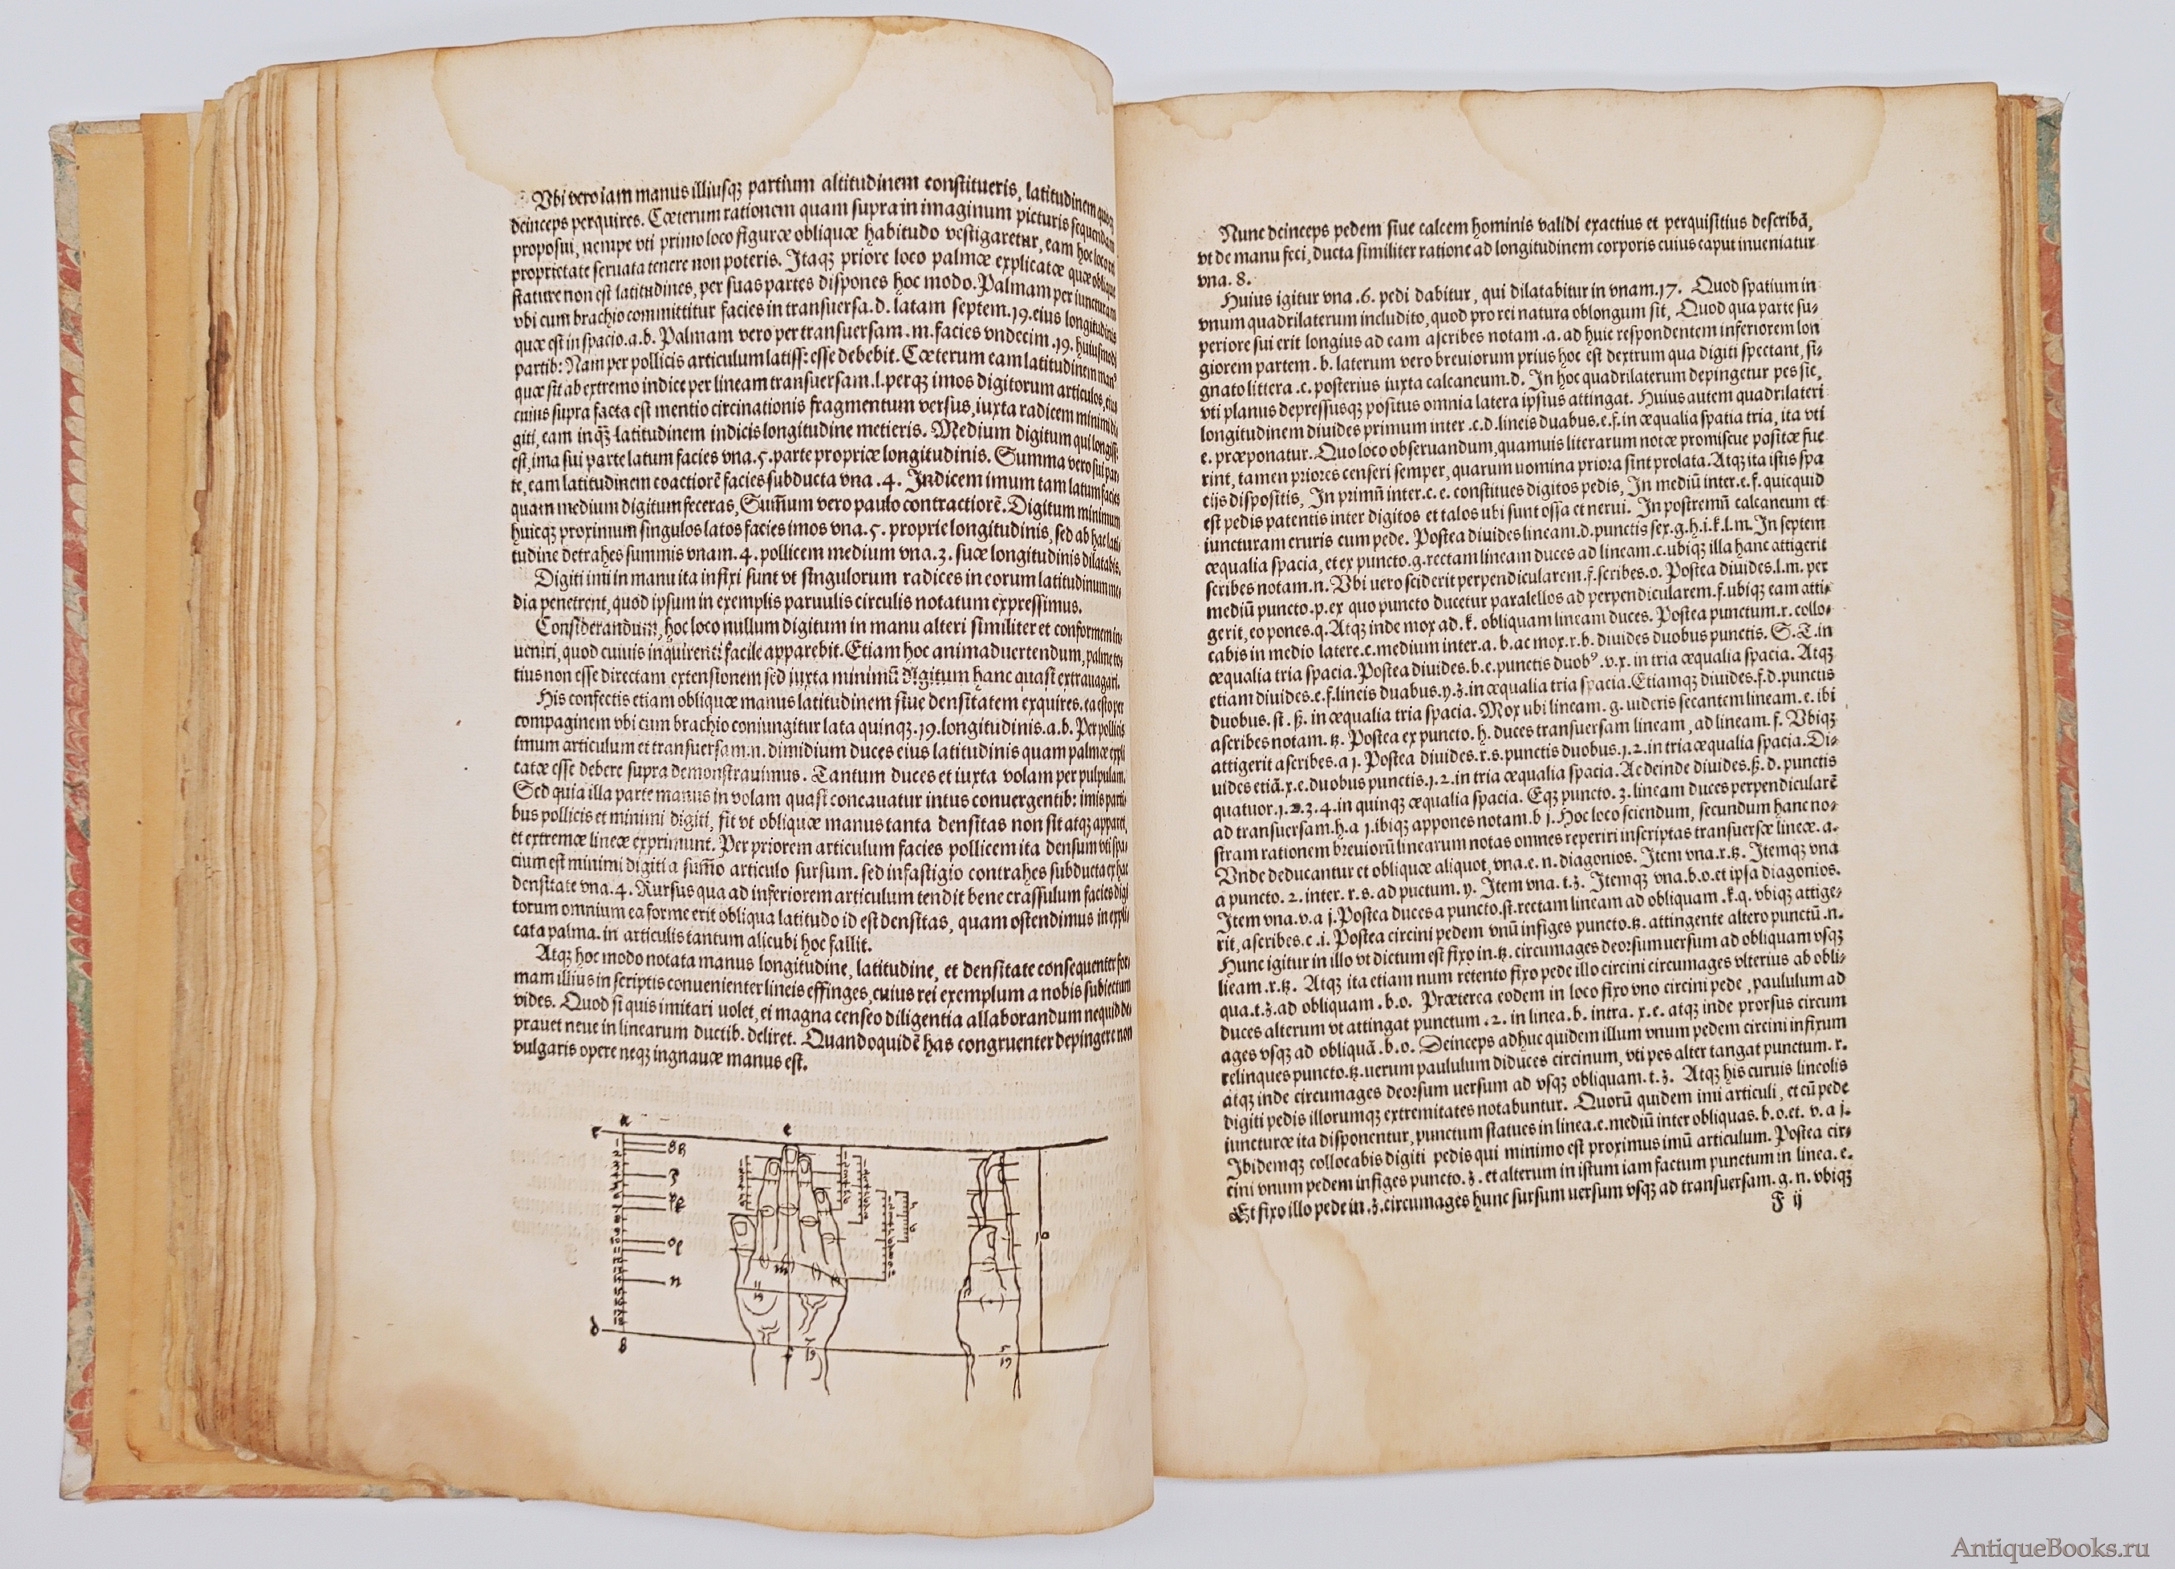 Vbi vero iam manus illiusqꝫ partium altitudinem constitueris, latitudinem
deinceps perquires. Cæterum rationem quam supra in imaginum picturis sequendam
proposui, nempe vti primo loco figuræ obliquæ habitudo vestigaretur, eam hoc loco
proprietate seruata tenere non poteris. Itaqꝫ priore loco palmæ explicatæ quæ oblique
stature non est latitudines, per suas partes dispones hoc modo. Palmam per iuncturam
vbi cum brachio committitur facies in transuersa .d. latam septem .19. eius longitudinis
quæ est in spacio .a.b. Palmam vero per transuersam .m. facies vndecim .19. huiusmodi
partib: Nam per pollicis articulum latiss: esse debebit. Cæterum eam latitudinem man⁹
quæ sit ab extremo indice per lineam transuersam .l. perqꝫ imos digitorum articulos,
cuius supra facta est mentio circinationis fragmentum versus, iuxta radicem minimi di
giti, eam inqꝫ̃ latitudinem indicis longitudine metieris. Medium digitum qui longiss:
est, ima sui parte latum facies vna .5. parte propriæ longitudinis. Summa vero sui par
te, eam latitudinem coactiorẽ facies subducta vna .4. Indicem imum tam latum facies
quam medium digitum feceras, Sum̃um vero paulo contractiorẽ. Digitum minimum
huicqꝫ proximum singulos latos facies imos vna .5. proprie longitudinis, sed ab hac lati
tudine detrahes summis vnam .4. pollicem medium vna .3. suæ longitudinis dilatabis.
Digiti imi in manu ita infixi sunt vt singulorum radices in eorum latitudinum me
dia penetrent, quod ipsum in exemplis paruulis circulis notatum expressimus.
Considerandum, hoc loco nullum digitum in manu alteri similiter et conformem in
ueniri, quod cuiuis inquirenti facile apparebit. Etiam hoc animaduertendum, palme to
tius non esse directam extensionem sed iuxta minimũ digitum hanc quasi extrauagari.
His confectis etiam obliquæ manus latitudinem siue densitatem exquires. ea esto per
compaginem vbi cum brachio coniungitur lata quinqꝫ .19. longitudinis .a.b. Per pollicis
imum articulum et transuersam .n. dimidium duces eius latitudinis quam palmæ expli
catæ esse debere supra demonstrauimus. Tantum duces et iuxta volam per pulpulam.
Sed quia illa parte manus in volam quasi concauatur intus conuergentib: imis parti
bus pollicis et minimi digiti, fit vt obliquæ manus tanta densitas non sit atqꝫ apparet,
et extremæ lineæ exprimunt. Per priorem articulum facies pollicem ita densum vti spa
cium est minimi digiti a sum̃o articulo sursum. sed in fastigio contrahes subducta ex hac
densitate vna .4. Rursus qua ad inferiorem articulum tendit bene crassulum facies digi
torum omnium ea forme erit obliqua latitudo id est densitas, quam ostendimus in expli
cata palma. in articulis tantum alicubi hoc fallit.
Atqꝫ hoc modo notata manus longitudine, latitudine, et densitate consequenter for
mam illius in scriptis conuenienter lineis effinges, cuius rei exemplum a nobis subiectum
vides. Quod si quis imitari uolet, ei magna censeo diligentia allaborandum nequid de
prauet neue in linearum ductib. deliret. Quandoquidẽ has congruenter depingere non
vulgaris opere neqꝫ ingnauæ manus est.
c a e
n
d b
11
19
m
7
19
5
19
10
Nunc deinceps pedem siue calcem hominis validi exactius et perquisitius describã,
vt de manu feci, ducta similiter ratione ad longitudinem corporis cuius caput inueniatur
vna .8.
Huius igitur vna .6. pedi dabitur, qui dilatabitur in vnam .17. Quod spatium in
vnum quadrilaterum includito, quod pro rei natura oblongum sit, Quod qua parte su-
periore sui erit longius ad eam ascribes notam .a. ad huic respondentem inferiorem lon
giorem partem .b. laterum vero breuiorum prius hoc est dextrum qua digiti spectant, si-
gnato littera .c. posterius iuxta calcaneum .d. In hoc quadrilaterum depingetur pes sic,
vti planus depressusqꝫ positus omnia latera ipsius attingat. Huius autem quadrilateri
longitudinem diuides primum inter .c.d. lineis duabus .e.f. in æqualia spatia tria, ita vti
e. præponatur. Quo loco obseruandum, quamuis literarum notæ promiscue positæ fue
rint, tamen priores censeri semper, quarum uomina priora sint prolata. Atqꝫ ita istis spa
cijs dispositis, In primũ inter .c.e. constitues digitos pedis, In mediũ inter .e.f. quicquid
est pedis patentis inter digitos et talos ubi sunt ossa et nerui. In postremũ calcaneum et
iuncturam cruris cum pede. Postea diuides lineam .d. punctis sex .g.h.i.k.l.m. In septem
æqualia spacia, et ex puncto .g. rectam lineam duces ad lineam .c. ubiqꝫ illa hanc attigerit
scribes notam .n. Vbi uero sciderit perpendicularem .f. scribes .o. Postea diuides .l.m. per
mediũ puncto .p. ex quo puncto ducetur paralellos ad perpendicularem .f. ubiqꝫ eam atti-
gerit, eo pones .q. Atqꝫ inde mox ad .k. obliquam lineam duces. Postea punctum .r. collo-
cabis in medio latere .c. medium inter .a.b. ac mox .r.b. diuides duobus punctis. S.T. in
æqualia tria spacia. Postea diuides .b.e. punctis duob⁹ .v.x. in tria æqualia spacia. Atqꝫ
etiam diuides .e.f. lineis duabus .y.ʒ. in æqualia tria spacia. Etiamqꝫ diuides .f.d. punctis
duobus .st.ß. in æqualia tria spacia. Mox ubi lineam .g. uideris secantem lineam .e. ibi
ascribes notam .tz. Postea ex puncto .h. duces transuersam lineam, ad lineam .f. Vbiqꝫ
attigerit ascribes .a j. Postea diuides .r.s. punctis duobus .1.2. in tria æqualia spacia. Di-
uides etiã .x.e. duobus punctis .1.2. in tria æqualia spacia. Ac deinde diuides .ß.d. punctis
quatuor .1.2.3.4. in quinqꝫ æqualia spacia. Eqꝫ puncto .3. lineam duces perpendicularẽ
ad transuersam .h.a j. ibiqꝫ appones notam .b j. Hoc loco sciendum, secundum hanc no-
stram rationem breuiorũ linearum notas omnes reperiri inscriptas transuersæ lineæ .a.
Vnde deducantur et obliquæ aliquot, vna .e.n. diagonios. Item vna .r.tz. Itemqꝫ vna
a puncto .2. inter .r.s. ad puctum .y. Item vna .t.ʒ. Itemqꝫ vna .b.o. et ipsa diagonios.
Item vna .v.a j. Postea duces a puncto .st. rectam lineam ad obliquam .k.q. vbiqꝫ attige-
rit, ascribes .c.i. Postea circini pedem vnũ infiges puncto .tz. attingente altero punctũ .n.
Hunc igitur in illo vt dictum est fixo in .tz. circumages deorsum uersum ad obliquam vsqꝫ
lieam .r.tz. Atqꝫ ita etiam num retento fixo pede illo circini circumages vlterius ab obli-
qua .t.ʒ. ad obliquam .b.o. Præterea eodem in loco fixo vno circini pede, paululum ad
duces alterum vt attingat punctum .2. in linea .b. intra .x.e. atqꝫ inde prorsus circum
ages vsqꝫ ad obliquã .b.o. Deinceps adhuc quidem illum vnum pedem circini infixum
relinques puncto .tz. uerum paululum diduces circinum, vti pes alter tangat punctum .r.
atqꝫ inde circumages deorsum uersum ad vsqꝫ obliquam .t.ʒ. Atqꝫ his curuis lineolis
digiti pedis illorumqꝫ extremitates notabuntur. Quorũ quidem imi articuli, et cũ pede
iuncturæ ita disponentur, punctum statues in linea .e. mediũ inter obliquas .b.o. et .v.a j.
Ibidemqꝫ collocabis digiti pedis qui minimo est proximus imũ articulum. Postea cir-
cini vnum pedem infiges puncto .ʒ. et alterum in istum iam factum punctum in linea .e.
Et fixo illo pede in .ʒ. circumages hunc sursum uersum vsqꝫ ad transuersam .g.n. vbiqꝫ
F ij
AntiqueBooks.ru